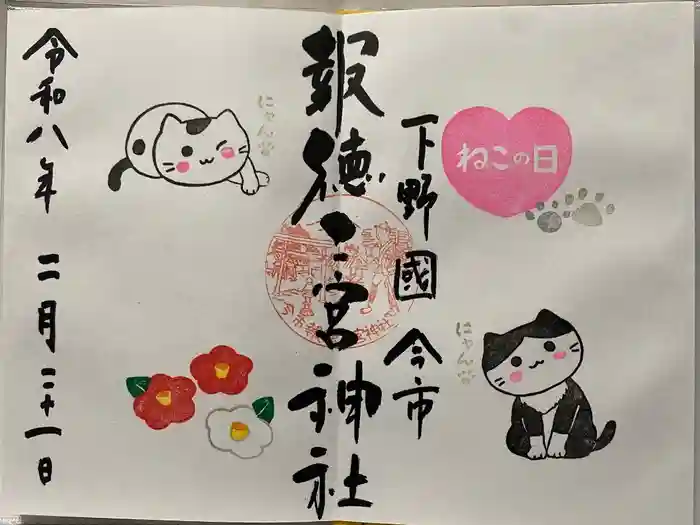 ねこの日
下野國 今市
にゃん
報徳二宮神社
にゃん
令和八年 二月二十一日